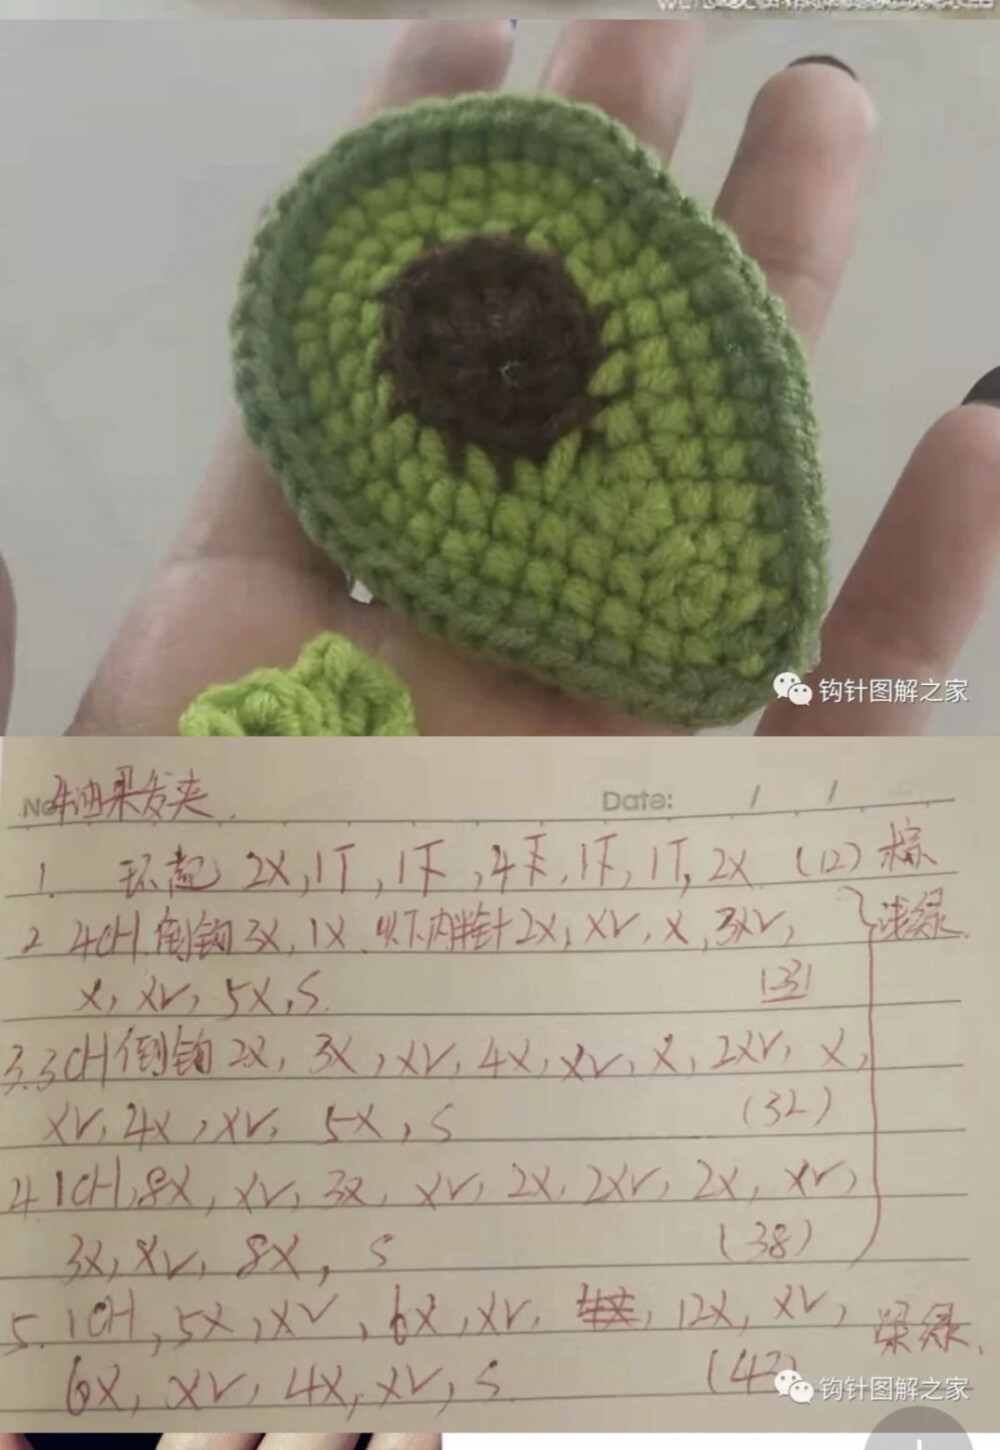 钩针图解之家
牛油果发夹.
No Date: / /
1. 环起 2X, 1T, 1下, 4下, 1下, 1T, 2X (12) 棕
2 4CH 倒钩 3X, 1X. 以下内半针 2X, XV, X, 3XV, 浅绿
X, XV, 5X, S. (23)
3. 3CH 倒钩 2X, 3X, XV, 4X, XV, X, 2XV, X,
XV, 4X, XV, 5X, S (32)
4. 1CH, 8X, XV, 3X, XV, 2X, 2XV, 2X, XV,
3X, XV, 8X, S (38)
5. 1CH, 5X, XV, 6X, XV, 12X, XV, 深绿.
6X, XV, 4X, XV, S (42)
钩针图解之家